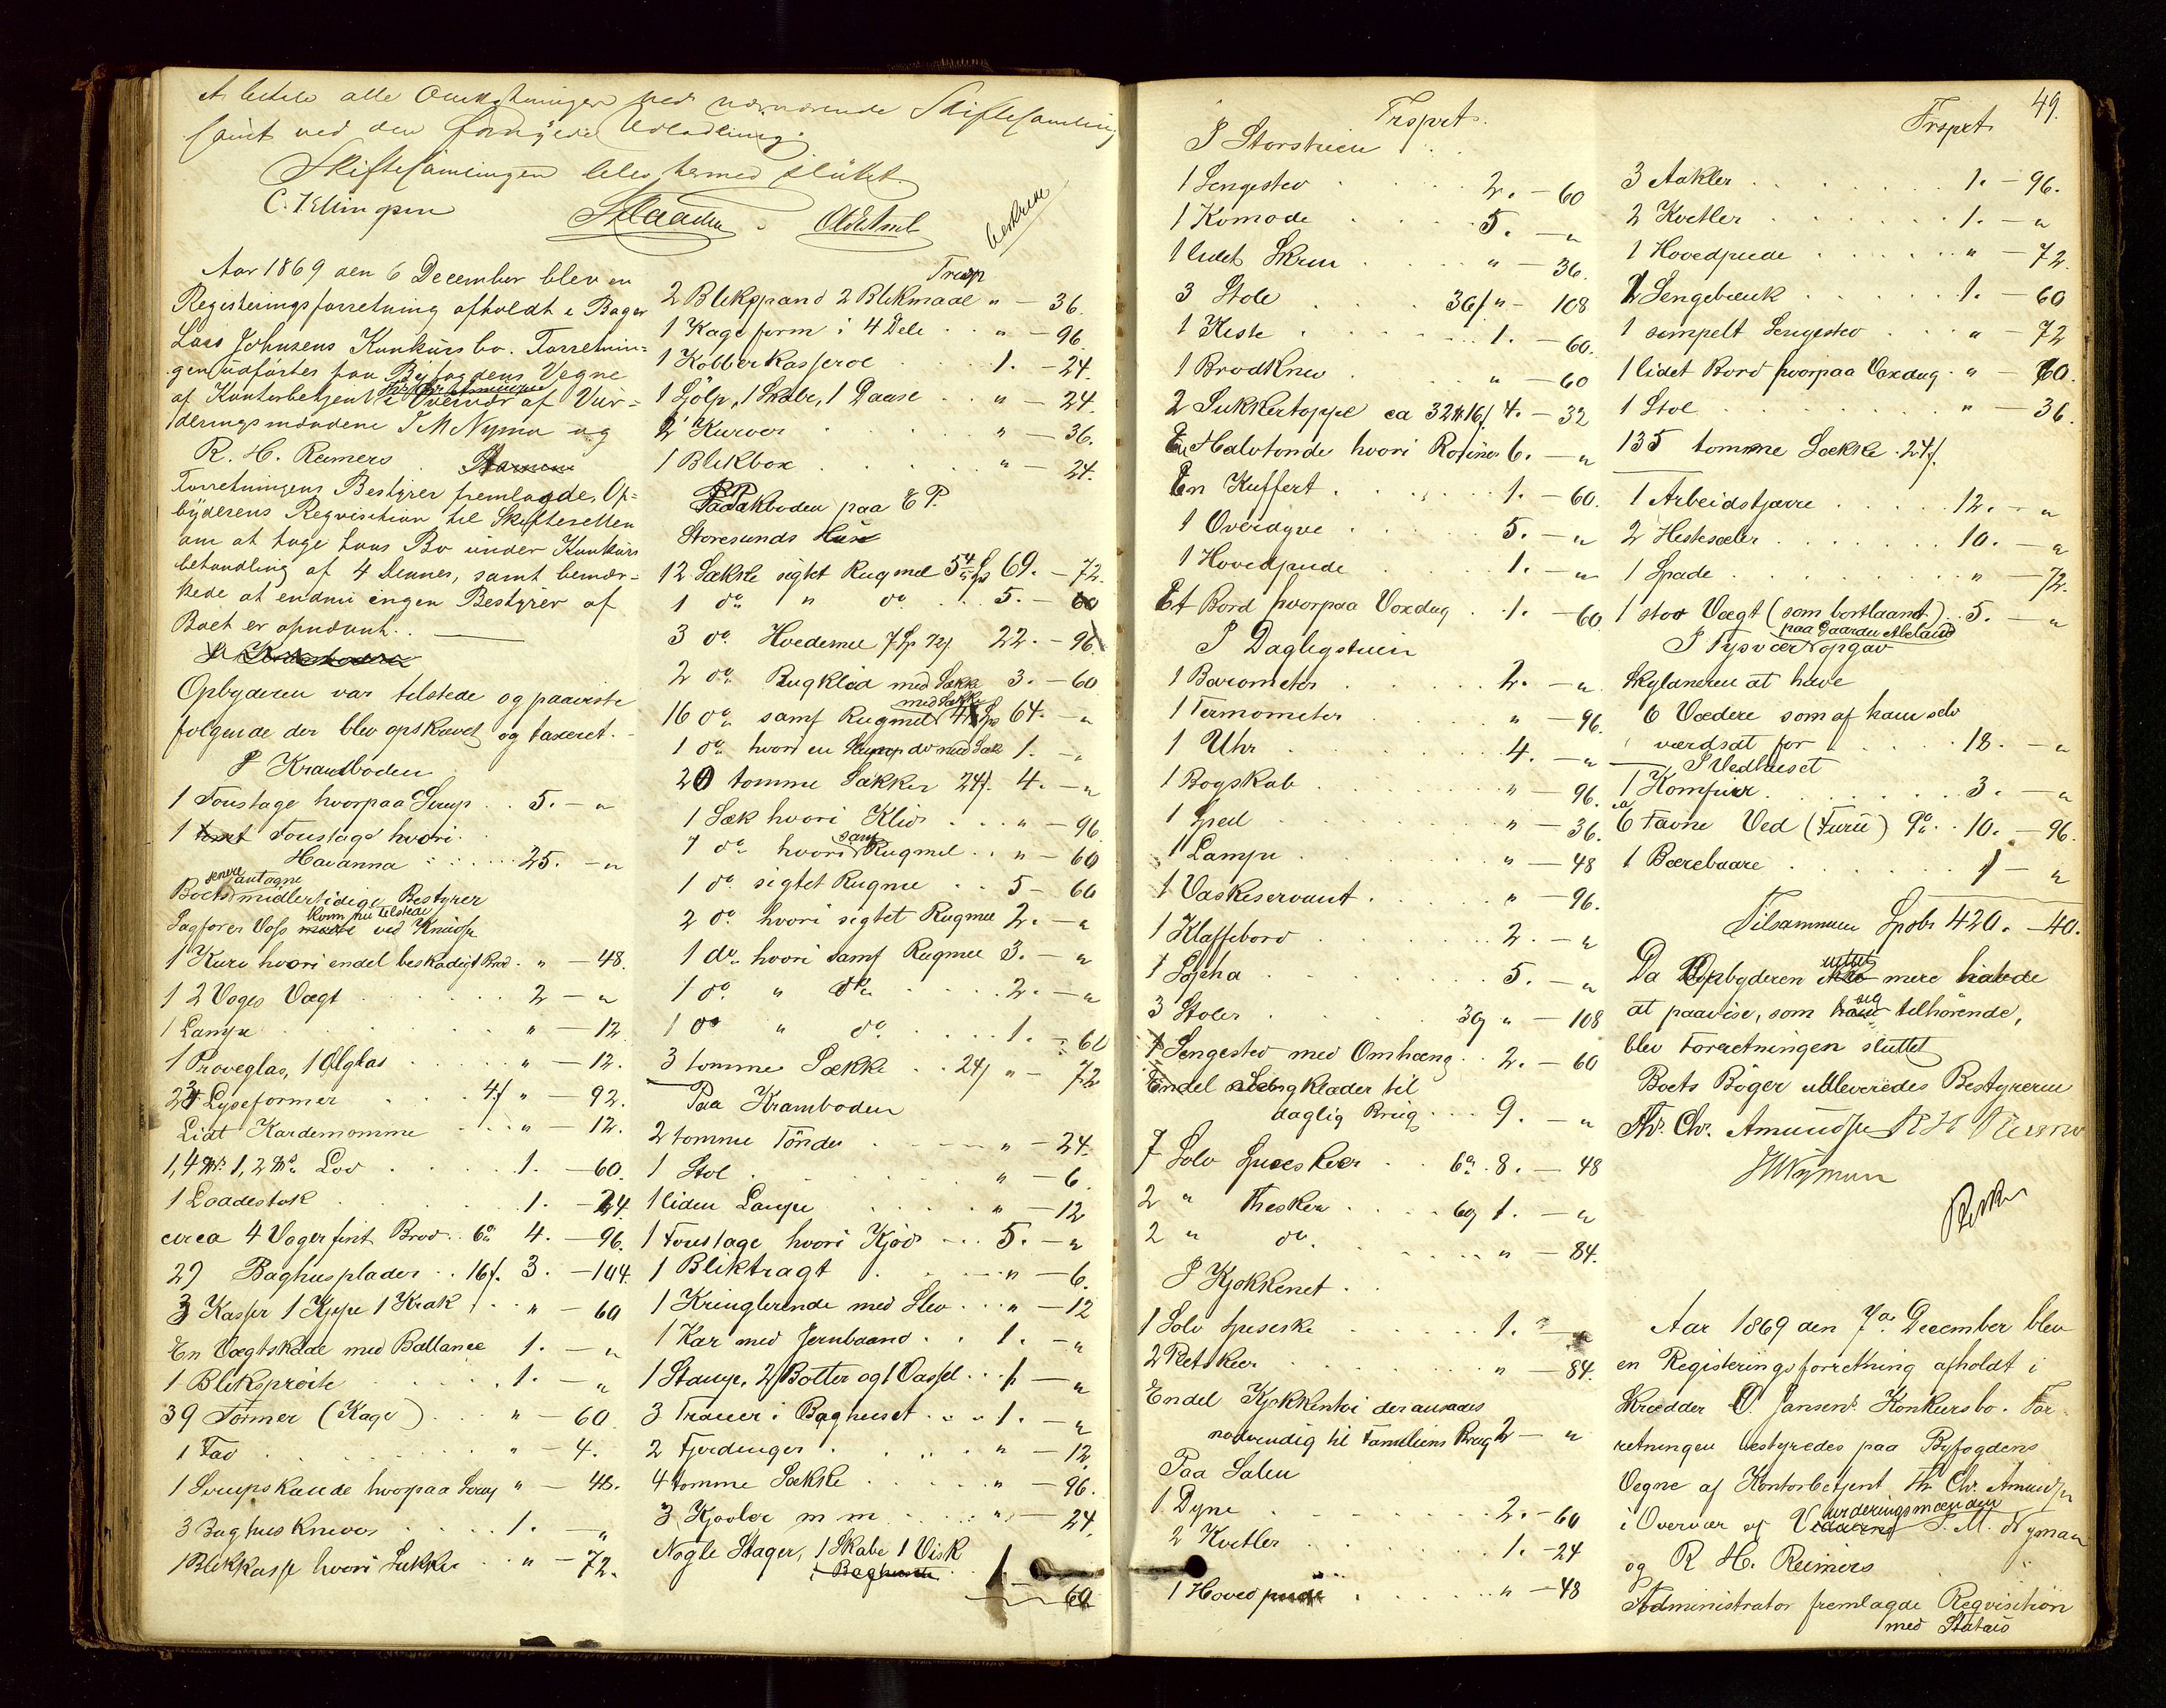 at betale alle Omkostninger ved nærværende Skiftesamling
samt ved den foregaaende Udlodning.
Skiftesamlingen blev hermed sluttet.
C. Ellingsen
beskreven
Aar 1869 den 6 December blev en
Registeringsforretning afholdt i Bager
Lars Johnsens Konkursbo. Forretnin=
gen udførtes paa Byfogdens Vegne
af Kontorbetjent i Overvær af Vur=
deringsmændene J M Nyman og
R. H. Reimers
Forretningens Bestyrer fremlagde Op=
byderens Reqvisition til Skifteretten
om at tage hans Bo under Konkurs
behandling af 4 dennes, samt bemær=
kede at endnu ingen Bestyrer af
Boet er opnævnt.
Opbyderen var tilstede og paaviste
følgende der blev opskrevet og taxeret.
I Kramboden
1 Foustage hvorpaa Sirup . . 5. - "
1 Foustage hvori
Havanna . . . . 25. - "
Boets senere antagne midlertidige Bestyrer
Sagfører Voss kom nu tilstede ved Knudsen
1 Kurv hvori endel beskadigt Brød . " - 48.
1 2 Vogs Vægt . . . 2 - "
1 Lampe . . . " - 12
1 Prøveglas, 1 Ølglas . . . " - 12.
23 Lyseformer . . . 4/ " - 92.
Lidt Kardemomme . . . " - 12.
1, 4 1, 2 Lod . . . 1. - 60.
1 Laadestok . . . 1. - 24
circa 4 Voger fint Brød . . 6 4. - 96.
27 Baghusplader . . 16/. 3. - 144.
3 Kasser 1 Kjepe 1 Krak . . " - 60
En Vægtskaal med Ballance 1. - "
1 Bliksprøite . . . 1. - "
39 Former (Kage) . . . " - 60
1 Fad . . . " - 4.
1 Sirupskande hvorpaa Sirup " - 48.
3 Baghusknive . . . 1. - "
1 Blikkasse hvori Sukker . . " - 72.
Trssp
2 Blikspand 2 Blikmaal " - 36.
1 Kageform i 4 Dele . . " - 96.
1 Kobberkasserol . . . 1. - 24.
1 1 Skabe, 1 Daase . . " - 24.
2 Kurver . . . " - 36.
1 Blikbox . . . " - 24.
Pakboden paa E P.
Storesunds Huse
12 Sække sigtet Rugmel 69. - 72.
1 do " do . . . 5. - 60
3 do Hvedemel 22. - 96
2 do Rugklid med Sække 3. - 60
16 do samf Rugmel med Sække 64. - "
1 do hvori en Slump do med Sæk 1. - "
20 tomme Sækker 24/. 4. - "
1 Sæk hvori Klid . . . " - 96
1 do hvori samf Rugmel . . " - 60
1 do sigtet Rugmel . . 5 - 60
2 do hvori sigtet Rugmel 2. - "
1 do hvori samf Rugmel 3. - "
1 do " do . . . 2. - "
1 do " do . . . 1. - 60
3 tomme Sække . . 24/ " - 72
Paa Kramboden
2 tomme Tønder . . . " - 24.
1 Stol . . . " - 6.
1 liden Lampe . . . " - 12
1 Foustage hvori Kjød . . . 5. - "
1 Bliktragt . . . " - 6.
1 Kringlerende med Slev . . . " - 12
1 Kar med Jernbaand . . 1. - "
1 Stamp, 2 Bøtter og 1 Vassel . . . 1 - "
3 Trauer i Baghuset . . . 1. - "
2 Fjerdinger . . . " - 12.
4 tomme Sække . . . " - 96.
3 Kjøvler m m . . . " - 24.
Nogle Stager, 1 Skabe 1 Visk
1 - 60
Trsprt.
I Storstuen
1 Sengested . . . 2. - 60
1 Komode . . . 5. - "
1 lidet Skrin . . . " - 36.
3 Stole . . . 36/ " - 108
1 Kiste . . . 1. - 60.
1 Brødkniv . . . " - 60
2 Sukkertoppe ca 32 16/ 4. - 32
En Halvtønde hvori Rosiner 6. - "
En Kuffert . . . 1. - 60.
1 Overdyne . . . 5. - "
1 Hovedpude . . . 1. - "
Et Bord hvorpaa Voxdug . . 1. - 60
I Dagligstuen
1 Barometer . . . 2. - "
1 Termometer . . . " - 96.
1 Uhr . . . 4. - "
1 Bogskab . . . " - 96.
1 Speil . . . " - 36.
1 Lampe . . . " - 48
1 Vaskeservant . . . " - 96.
1 Klaffebord . . . 2. - "
1 Sopha . . . 5. - "
3 Stoler . . . 36/ " - 108
1 Sengested med Omhæng . . 2. - 60
Endel klæder til
daglig Brug . . . 9. - "
7 Sølv Spiseskeer . . 8. - 48
2 " Theskeer . . . 60/ 1. - "
2 " do . . . " - 84.
I Kjøkkenet . .
1 Sølv Spiseske . . . 1. - "
2 Potskeer . . . " - 84.
Endel Kjøkkentøi der ansaaes
nødvendig til Familiens Brug 2 - "
Paa Salen
1 Dyne . . . 2. - 60
2 Kvitler . . . 1. - 24
1 Hovedpude . . . " - 48
49.
Trsprt.
3 Aakler . . . 1. - 96.
2 Kvitler . . . 1. - "
1 Hovedpude . . . " - 72.
1 Sengebænk . . . 1. - 60
1 simpelt Sengested . . . " - 72
1 lidet Bord hvorpaa Voxdug . " - 60.
1 Stol . . . " - 36.
135 tomme Sække . 24/.
1 Arbeidskjærre . . . 12. - "
2 Hesteseler . . . 10. - "
1 Spade . . . " - 72.
1 stor Vægt (som bortlaant) . . 5. - "
I Tysvær paa Gaarden opgav
Skyldneren at have
6 Vædere som af ham selv
værdsat for . . . 18. - "
I Vedhuset
1 Komfuur . . . 3. - "
ca 6 Favne Ved (Furu) . . 10. - 96.
1 Bærebaare . . . 1 - "
Tilsammen Spdlr 420. - 40.
Da Opbyderen intet mere havde
at paavise, som sig tilhørende,
blev Forretningen sluttet
Boets Bøger udleveredes Bestyreren
Thr. Chr. Amundsen R H Reimers
J M Nyman
Aar 1869 den 7de December blev
en Registeringsforretning afholdt i
Skrædder O Jansens Konkursbo. For
retningen bestyredes paa Byfogdens
Vegne af Kontorbetjent Th. Chr. Amundsen
i Overvær af Vurderingsmændene J. M. Nyman
og R. H. Reimers
Administrator fremlagde Reqvisition
med Status